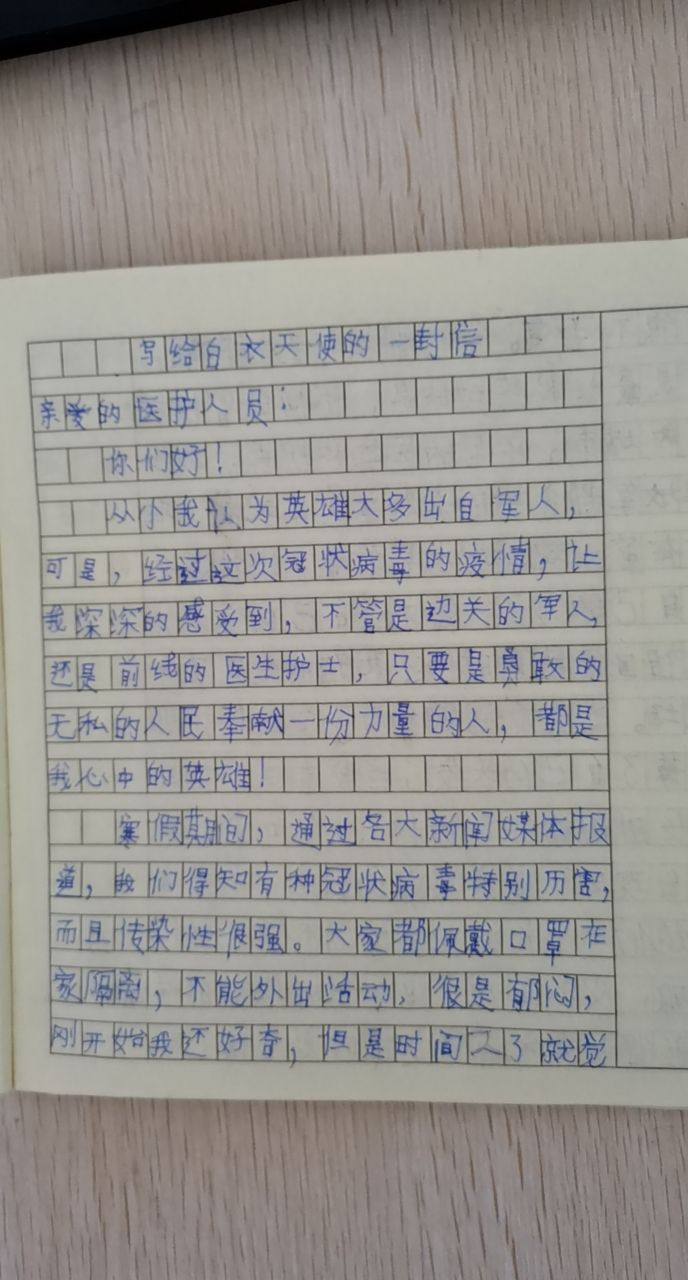 写给白衣天使的一封信
亲爱的医护人员：
你们好！
从小我认为英雄大多出自军人，
可是，经过这次冠状病毒的疫情，让
我深深的感受到，不管是边关的军人，
还是前线的医生护士，只要是勇敢的
无私的人民奉献一份力量的人，都是
我心中的英雄！
寒假期间，通过各大新闻媒体报
道，我们得知有种冠状病毒特别历害，
而且传染性很强。大家都佩戴口罩在
家隔离，不能外出活动，很是郁闷，
刚开始我还好奇，但是时间久了就觉